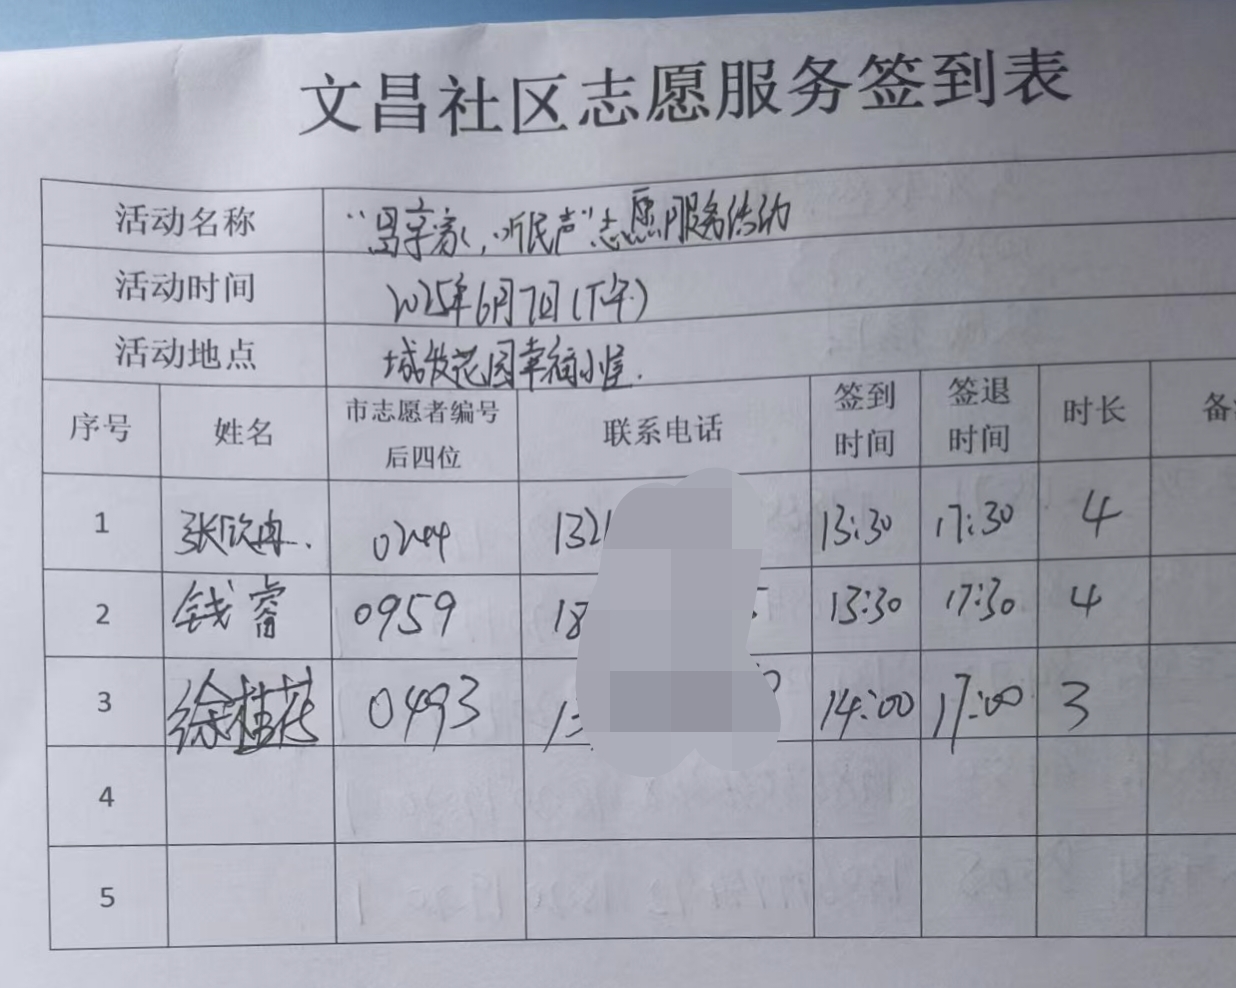 文昌社区志愿服务签到表
活动名称 ，听民声”志愿服务活动
活动时间 2025年6月7日(下午)
活动地点 城投花园幸福小屋.
序号 姓名 市志愿者编号后四位 联系电话 签到时间 签退时间 时长 备
1 张欣冉. 0244 132 13:30 17:30 4
2 钱睿 0959 18 13:30 17:30 4
3 徐桂花 0493 14:00 17:00 3
4
5